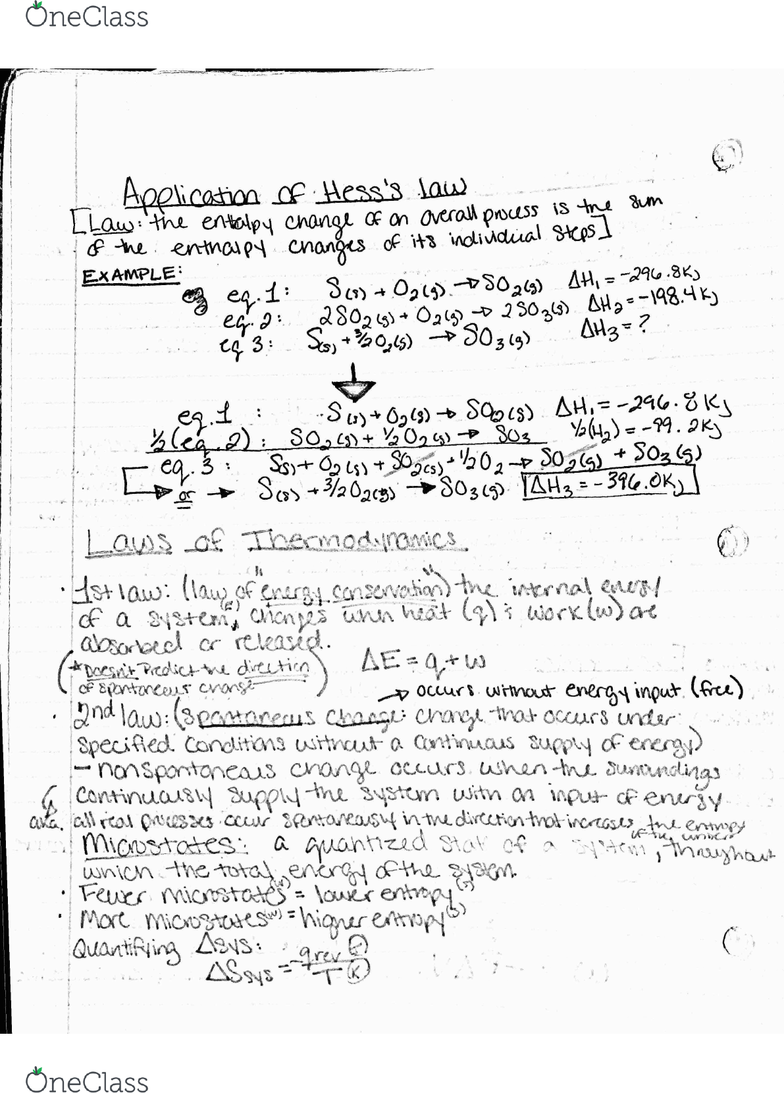 OneClass
Application of Hess's law
[Law: the entalpy change of an overall process is the sum
of the enthalpy changes of its individual steps]
EXAMPLE:
eq.1: S(s) + O2(g) → SO2(g) ΔH1 = -296.8KJ
eq.2: 2SO2(g) + O2(g) → 2SO3(g) ΔH2 = -198.4KJ
eq 3: S(s) + 3/2O2(g) → SO3(g) ΔH3 = ?
eq.1 : S(s) + O2(g) → SO2(g) ΔH1 = -296.8KJ
1/2(eq.2): SO2(g) + 1/2O2(g) → SO3 1/2(H2) = -99.2KJ
eq.3: S(s) + O2(g) + SO2(g) + 1/2O2 → SO2(g) + SO3(g)
or → S(s) + 3/2O2(g) → SO3(g) ΔH3 = -396.0KJ
Laws of Thermodynamics
· 1st law: (law of "energy conservation") the internal energy
of a system(E), changes when heat (q) & work(w) are
absorbed or released.
(*Doesn't Predict the direction
of spontaneous change)
ΔE = q + w
→ occurs without energy input (free)
· 2nd law: (spontaneous change: change that occurs under
specified conditions without a continuous supply of energy)
- nonspontaneous change occurs when the surroundings
continuously supply the system with an input of energy
aka. all real processes occur spontaneously in the direction that increases the entropy
of the univers
Microstates: a quantized stat of a system, throughout
which the total energy of the system.
· Fewer microstates(w) = lower entropy(s)
· More microstates(w) = higher entropy(s)
Quantifying ΔSys:
ΔSsys = qrev/T (K)
OneClass